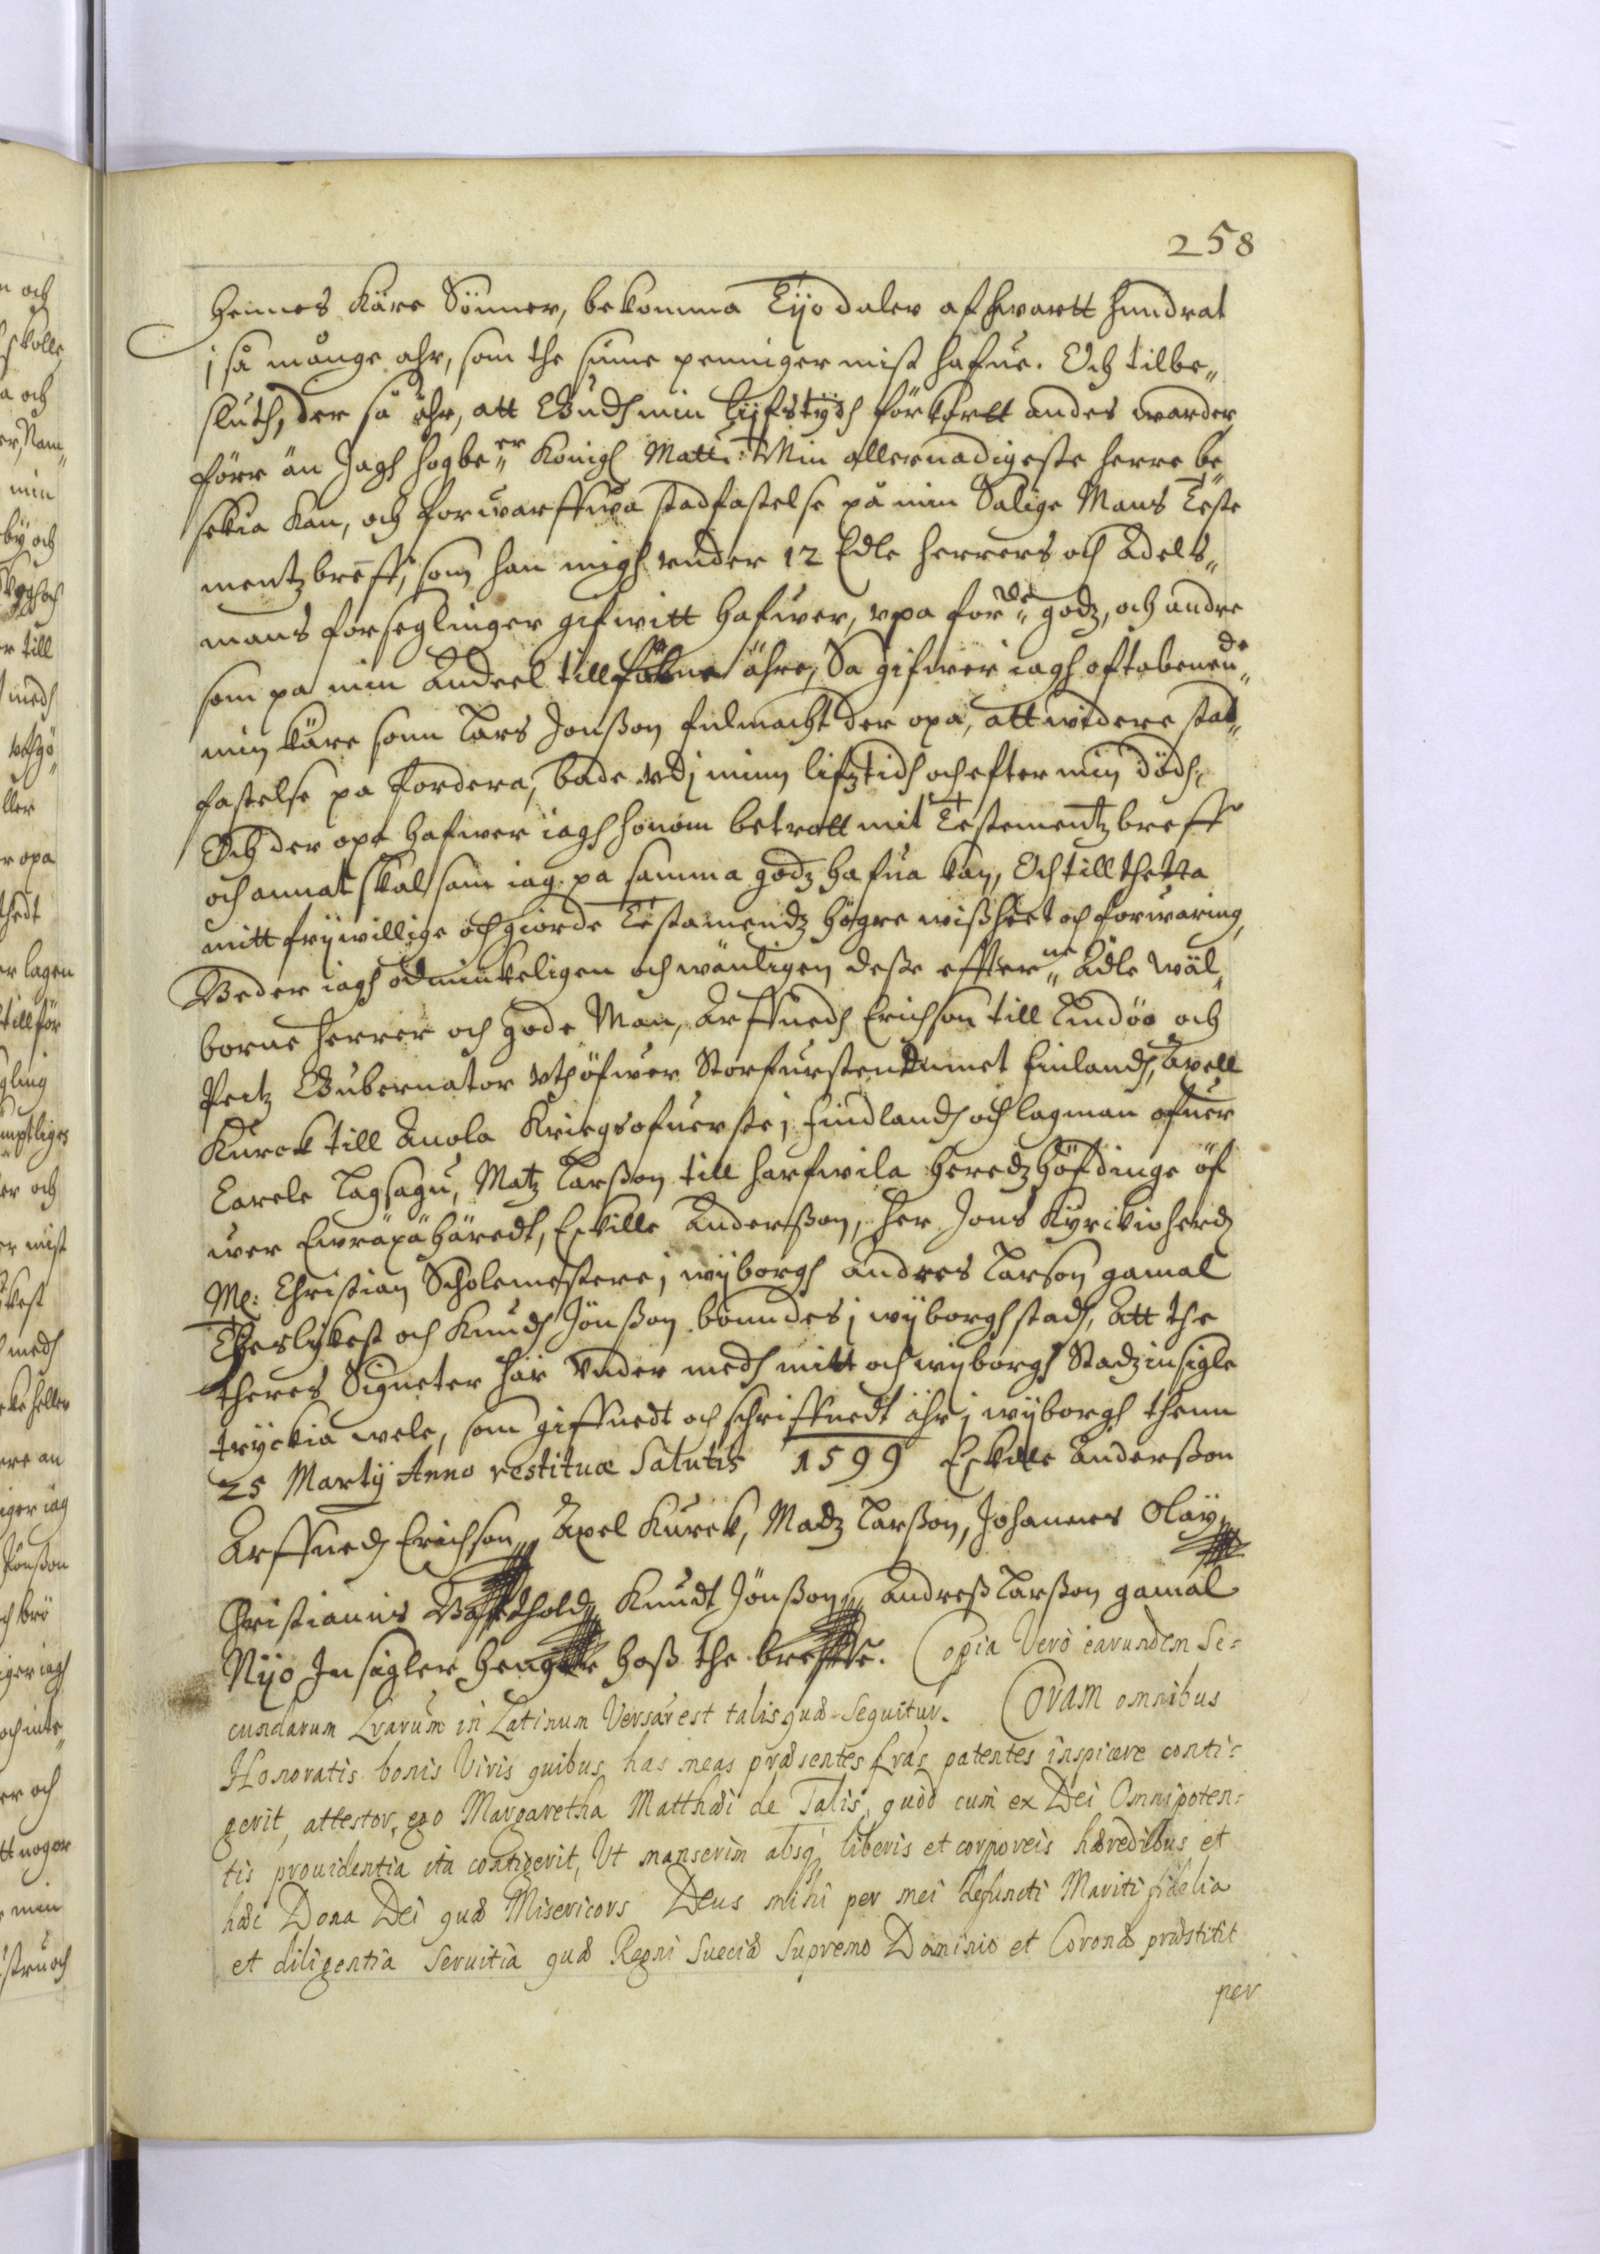 258
hennes Käre Sönner, bekomma Tijo daler af hwartt hundrat
j så mange ahr, som the sinne penninger mist hafue. Och tilbe„
sluth, der så ähr, att Gudh min lijfstijdh förkortt andes warder,
förr än Jagh högbe„er Königl Matt: Min allernadigeste herre be„
sekia kan, och forwarffwa stadfästelse på min Salige Mans Teste
mentzbreff, som han migh vnder 12 Edle herrers och Adels„
mans forseglinger gifwitt hafwer, vpa for„de godz, och andre
som pa min Andeel till fäkne ähre, Sa gifwer iagh oftabenen„de
min käre sonn Lars Jonßon fulmacht der opa, att widere stad„
fastelse pa fordera, bade vdj minn lifztidh och efter min dödh,
Och der opa hafwer iagh honom betrott mit Testementzbreff
och annat skäl som iag pa samma godz hafua kan, Och till thetta
mitt frijwillige och giorde Testamendz högre wißheet och forwaring,
Beder iagh ödmiukeligen och wänligen desse effter„ne Ädle wäl„
borne herrer och gode Män, Arffuedh Erichson till Lindöö och
Peitz Gubernator vthöfwer Storfurstendumet Finlandh, Axell
Kurck till Anola Kriegsofuerste j Findlandh och lagman ofuer
Carele lagsagu, Matz Larßon till harfwila heredzhöfdinge öf
wer Ewräpä häredt, Eskille Anderßon, her Jons Kyrckioherd
M: Christian Scholemestere j wijborgh andres Larson gamal
Theslijkest och Knudh Jönßon boendes j wijborgh stadh, att the
theres Signeter här vnder medh mitt och wijborgh Stadz insigle
tryckia wele, som giffuedt och schriffuedt ähr j wijborgh thenn
25 Martij Anno restitutæ Salutis 1599 Eskille Anderßon
Arffuedh Erichson, Axel Kurck, Madz Larßon, Johannes Olaij,
Christianus Knudt Jönßon, Andreß Larßon gamal
Nijo Insigler hengde hoß the breffue. Copia Verò earundem Se=
cundarum Lrarum in Latinum Versa est talis quæ Sequitur. Coram omnibus
Honoratis bonis Viris quibus has meas præsentes Lras patentes inspicere conti=
gerit, attestor, ego Margaretha Matthæi de Talis, quòd cum ex Dei Omnipoten=
tis prouidentia ita contigerit, Ut manserim absq; liberis et corporeis hæredibus, et
hæc Dona Dei quæ Misericors Deus mihi per mei defuncti Mariti fidelia
et diligentia Seruitia quæ Regni Sueciæ Supremo Dominio et Coronæ præstitit
per